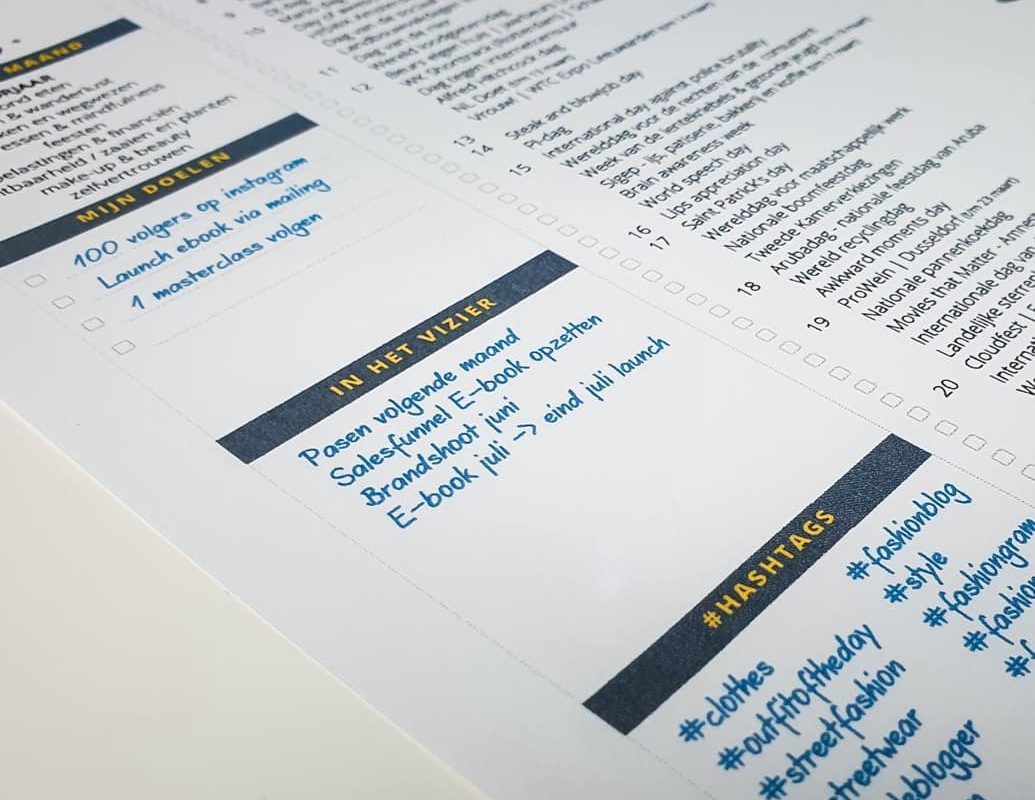 MAAND
& wanderlust
essen & mindfulness
feesten
elastingen & financiën
tbaarheid / zaaien en planten
make-up & beauty
zelfvertrouwen
MIJN DOELEN
100 volgers op instagram
Launch ebook via mailing
1 masterclass volgen
IN HET VIZIER
Pasen volgende maand
Salesfunnel E-book opzetten
Brandshoot juni
E-book juli -> eind juli launch
#HASHTAGS
#clothes
#outfitoftheday
#streetfashion
treetwear
eblogger
#fashionblog
#style
#fashiongram
#fashion
#f
10
11
12
Alfred Hitchcock dag
13
Steak and blowjob day
14
Pi-dag
International day against police brutality
Werelddag voor de rechten van de consument
15
Week van de lentekriebels & gezonde jeugd
Sigep - ijs, patisserie, bakkerij en koffie
Brain awareness week
World speech day
Lips appreciation day
16
Saint Patrick's day
17
Werelddag voor maatschappelijk werk
Nationale boomfeestdag
Tweede Kamerverkiezingen
Arubadag - nationale feestdag van Aruba
18
Wereld recyclingdag
Awkward moments day
19
ProWein | Dusseldorf (t/m 23 maart)
Nationale pannenkoekdag
Movies that Matter
Internationale dag van
Landelijke sterren
20
Cloudfest |
Internati